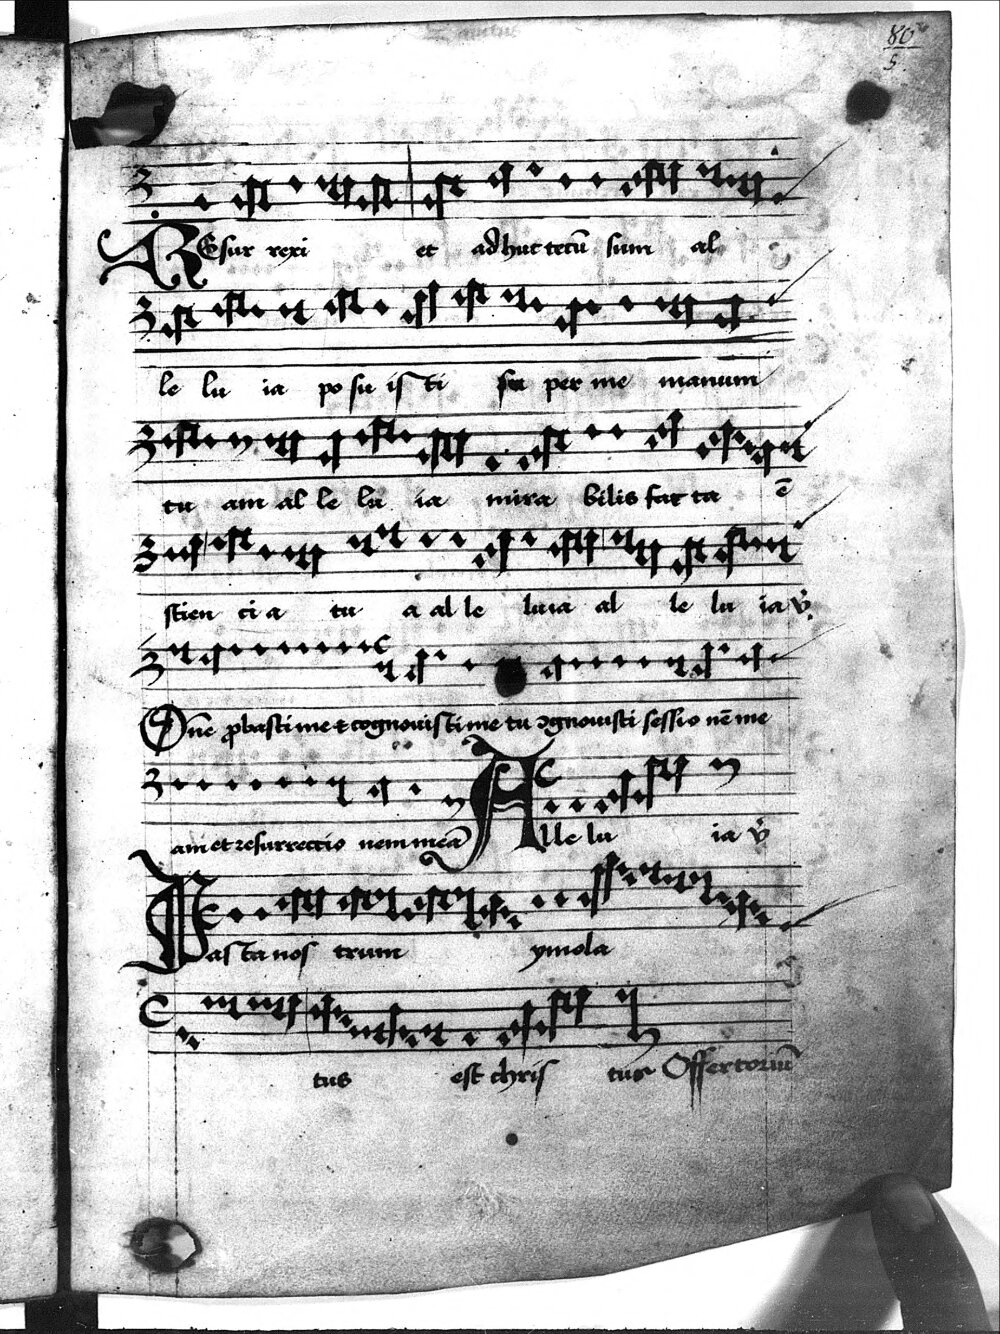 80
5
REsur rexi et adhuc tecū sum al
le lu ia po su is ti su per me manum
tu am al le lu ia mira bilis fac ta ē
scien ci a tu a al le luia al le lu ia v̄
Dn̄e ꝓbasti me et cognouisti me tu ꝯgnouisti sessio nē me
am et resurrectio nem meā Alle lu ia v̄
Pas ca nos trum ymola
tus est chris tus Offertoriū